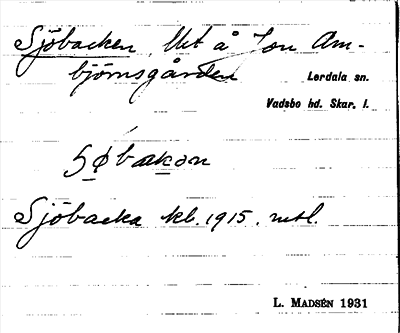 Sjöbacken, Utst å Jon Am-
björnsgården
Lerdala sn.
Vadsbo hd. Skar. l.
Sjöbacka kb. 1915. mtl.
L. MADSÉN 1931